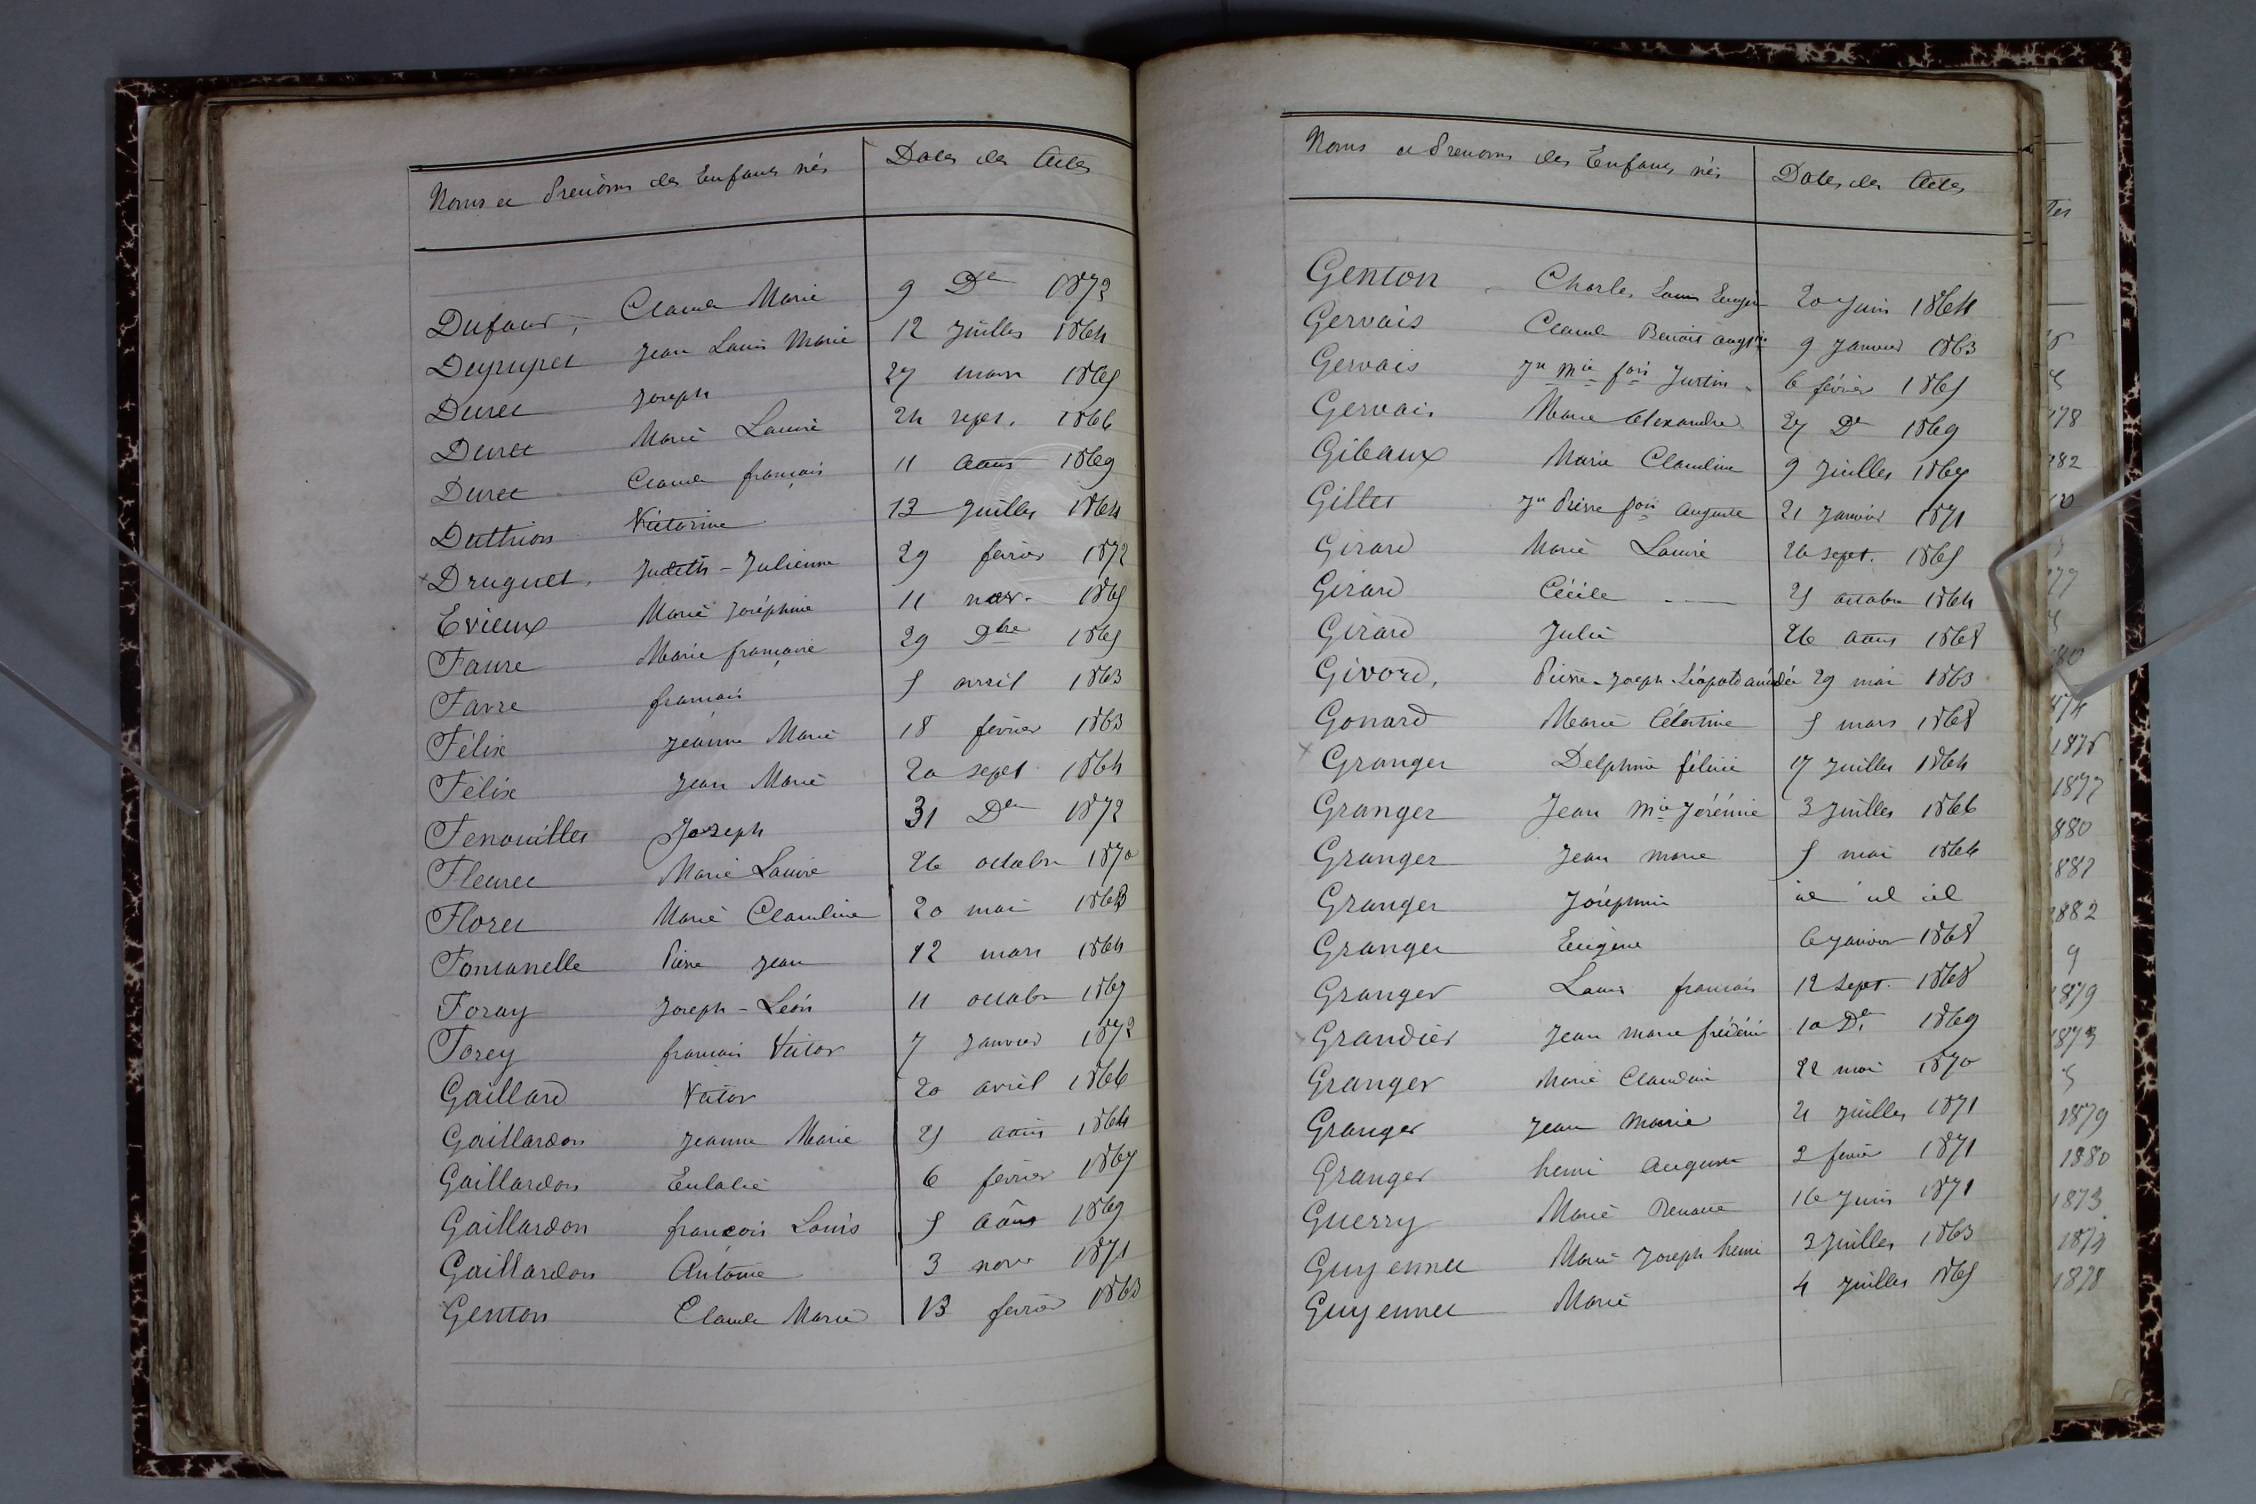 Noms et Prénoms des Enfans nés Dates des Actes
Dufour, Claude Marie 9 Dre 1872
Dupupet Jean Louis Marie 12 juillet 1864
Duret Joseph 27 mars 1865
Duret Marie Louise 24 sept. 1866
Duret Claude françois 11 aout 1869
Duthion Victorine 13 juillet 1864
x Druguet, Judith - Julienne 29 fevrier 1872
Evieux Marie Joséphine 11 nov. 1865
Faure Marie françoise 29 Dbre 1865
Favre françois 5 avril 1863
Félix Jeanne Marie 18 fevrier 1863
Félix Jean Marie 20 sept 1864
Fenouillet Joseph 31 Dre 1872
Fleuret Marie Louise 26 octobre 1870
Floret Marie Claudine 20 mai 1863
Fontanelle Pierre Jean 12 mars 1864
Foray Joseph - Léon 11 octobre 1867
Forey françois Victor 7 janvier 1872
Gaillard Victor 20 avril 1866
Gaillardon Jeanne Marie 25 aout 1864
Gaillardon Eulalie 6 fevrier 1867
Gaillardon françois Louis 5 août 1869
Gaillardon Antoine 3 nove 1871
Genton Claude Marie 13 fevrier 1863
Noms et Prenoms des Enfans nés Dates des Actes
Genton Charles Louis Eugen 20 juin 1864
Gervais Claude Benoit augtin 9 janvier 1863
Gervais Jn mie fois Justin 6 février 1865
Gervais Marie Alexandre 27 Dre 1869
Gibaux Marie Claudine 9 juillet 1867
Gillet Jn Pierre fois Auguste 21 janvier 1871
Girard Marie Louise 20 sept. 1865
Girard Cécile 25 octobre 1864
Girard Julie 26 aout 1868
Givord, Pierre - Joseph - Léopold amédée 29 mai 1863
Gonard Marie Célestine 5 mars 1868
x Granger Delphine félicie 17 juillet 1864
Granger Jean Mie Jérémie 3 juillet 1866
Granger Jean marie 5 mai 1866
Granger Joséphine id id id
Granger Eugène 6 janvier 1868
Granger Louis francois 12 Sept. 1868
x Grandier Jean marie frédéric 10 Dre 1869
Granger Marie Claudine 22 mai 1870
Granger Jean Marie 21 juillet 1871
Granger henri Auguste 2 fevrier 1871
Guerry Marie Renaue 16 juin 1871
Guyennet Marie Joseph henri 3 juillet 1863
Guyennet Marie 4 juillet 1865
tes
78
82
77
80
74
1875
1877
880
882
882
9
1879
1873
1879
1880
1873
1874
1878